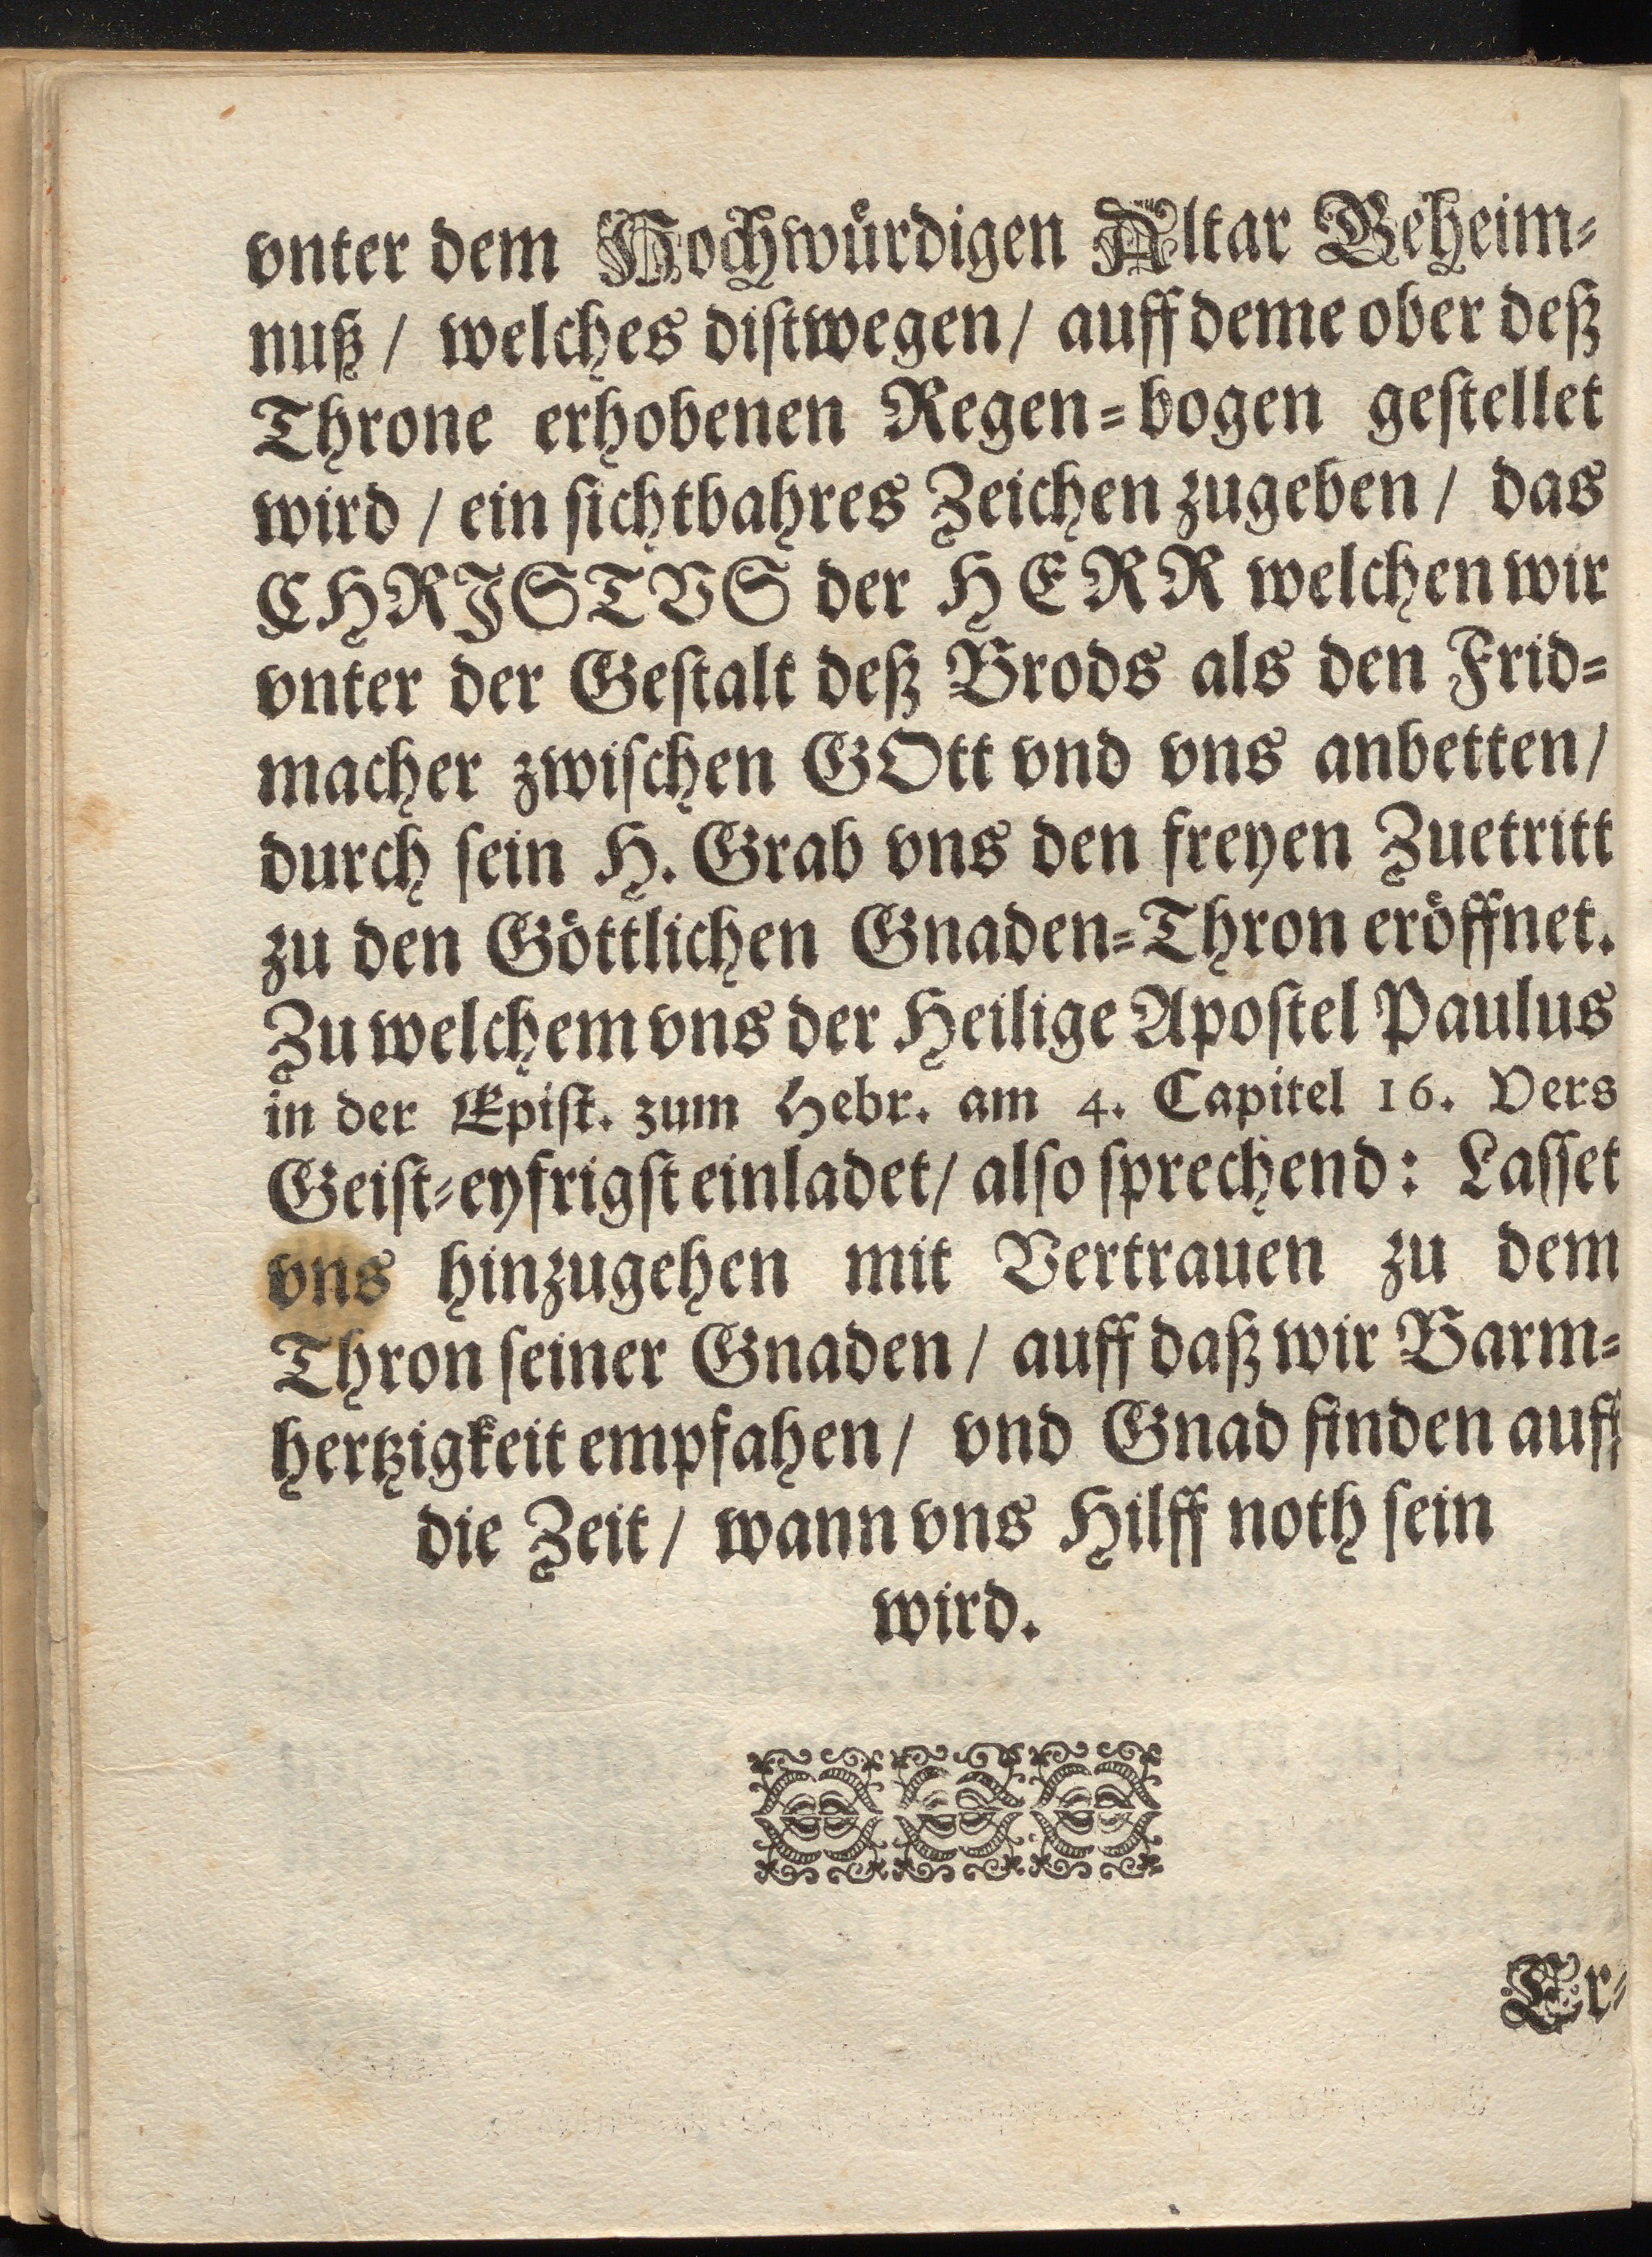 vnter dem Hochwürdigen Altar Geheim=
nuß / welches distwegen / auff deme ober deß
Throne erhobenen Regen=bogen gestellet
wird / ein sichtbahres Zeichen zugeben / das
CHRJSTVS der HERR welchen wir
vnter der Gestalt deß Brods als den Frid=
macher zwischen GOtt vnd vns anbetten /
durch sein H. Grab vns den freyen Zuetritt
zu den Göttlichen Gnaden=Thron eröffnet.
Zu welchem vns der Heilige Apostel Paulus
in der Epist. zum Hebr. am 4. Capitel 16. Vers
Geist=eyfrigst einladet / also sprechend: Lasset
vns hinzugehen mit Vertrauen zu dem
Thron seiner Gnaden / auff daß wir Barm=
hertzigkeit empfahen / vnd Gnad finden auff
die Zeit / wann vns Hilff noth sein
wird.
Er=